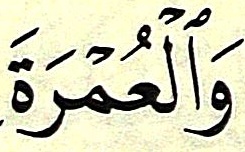 وَٱلْعُمْرَةَ